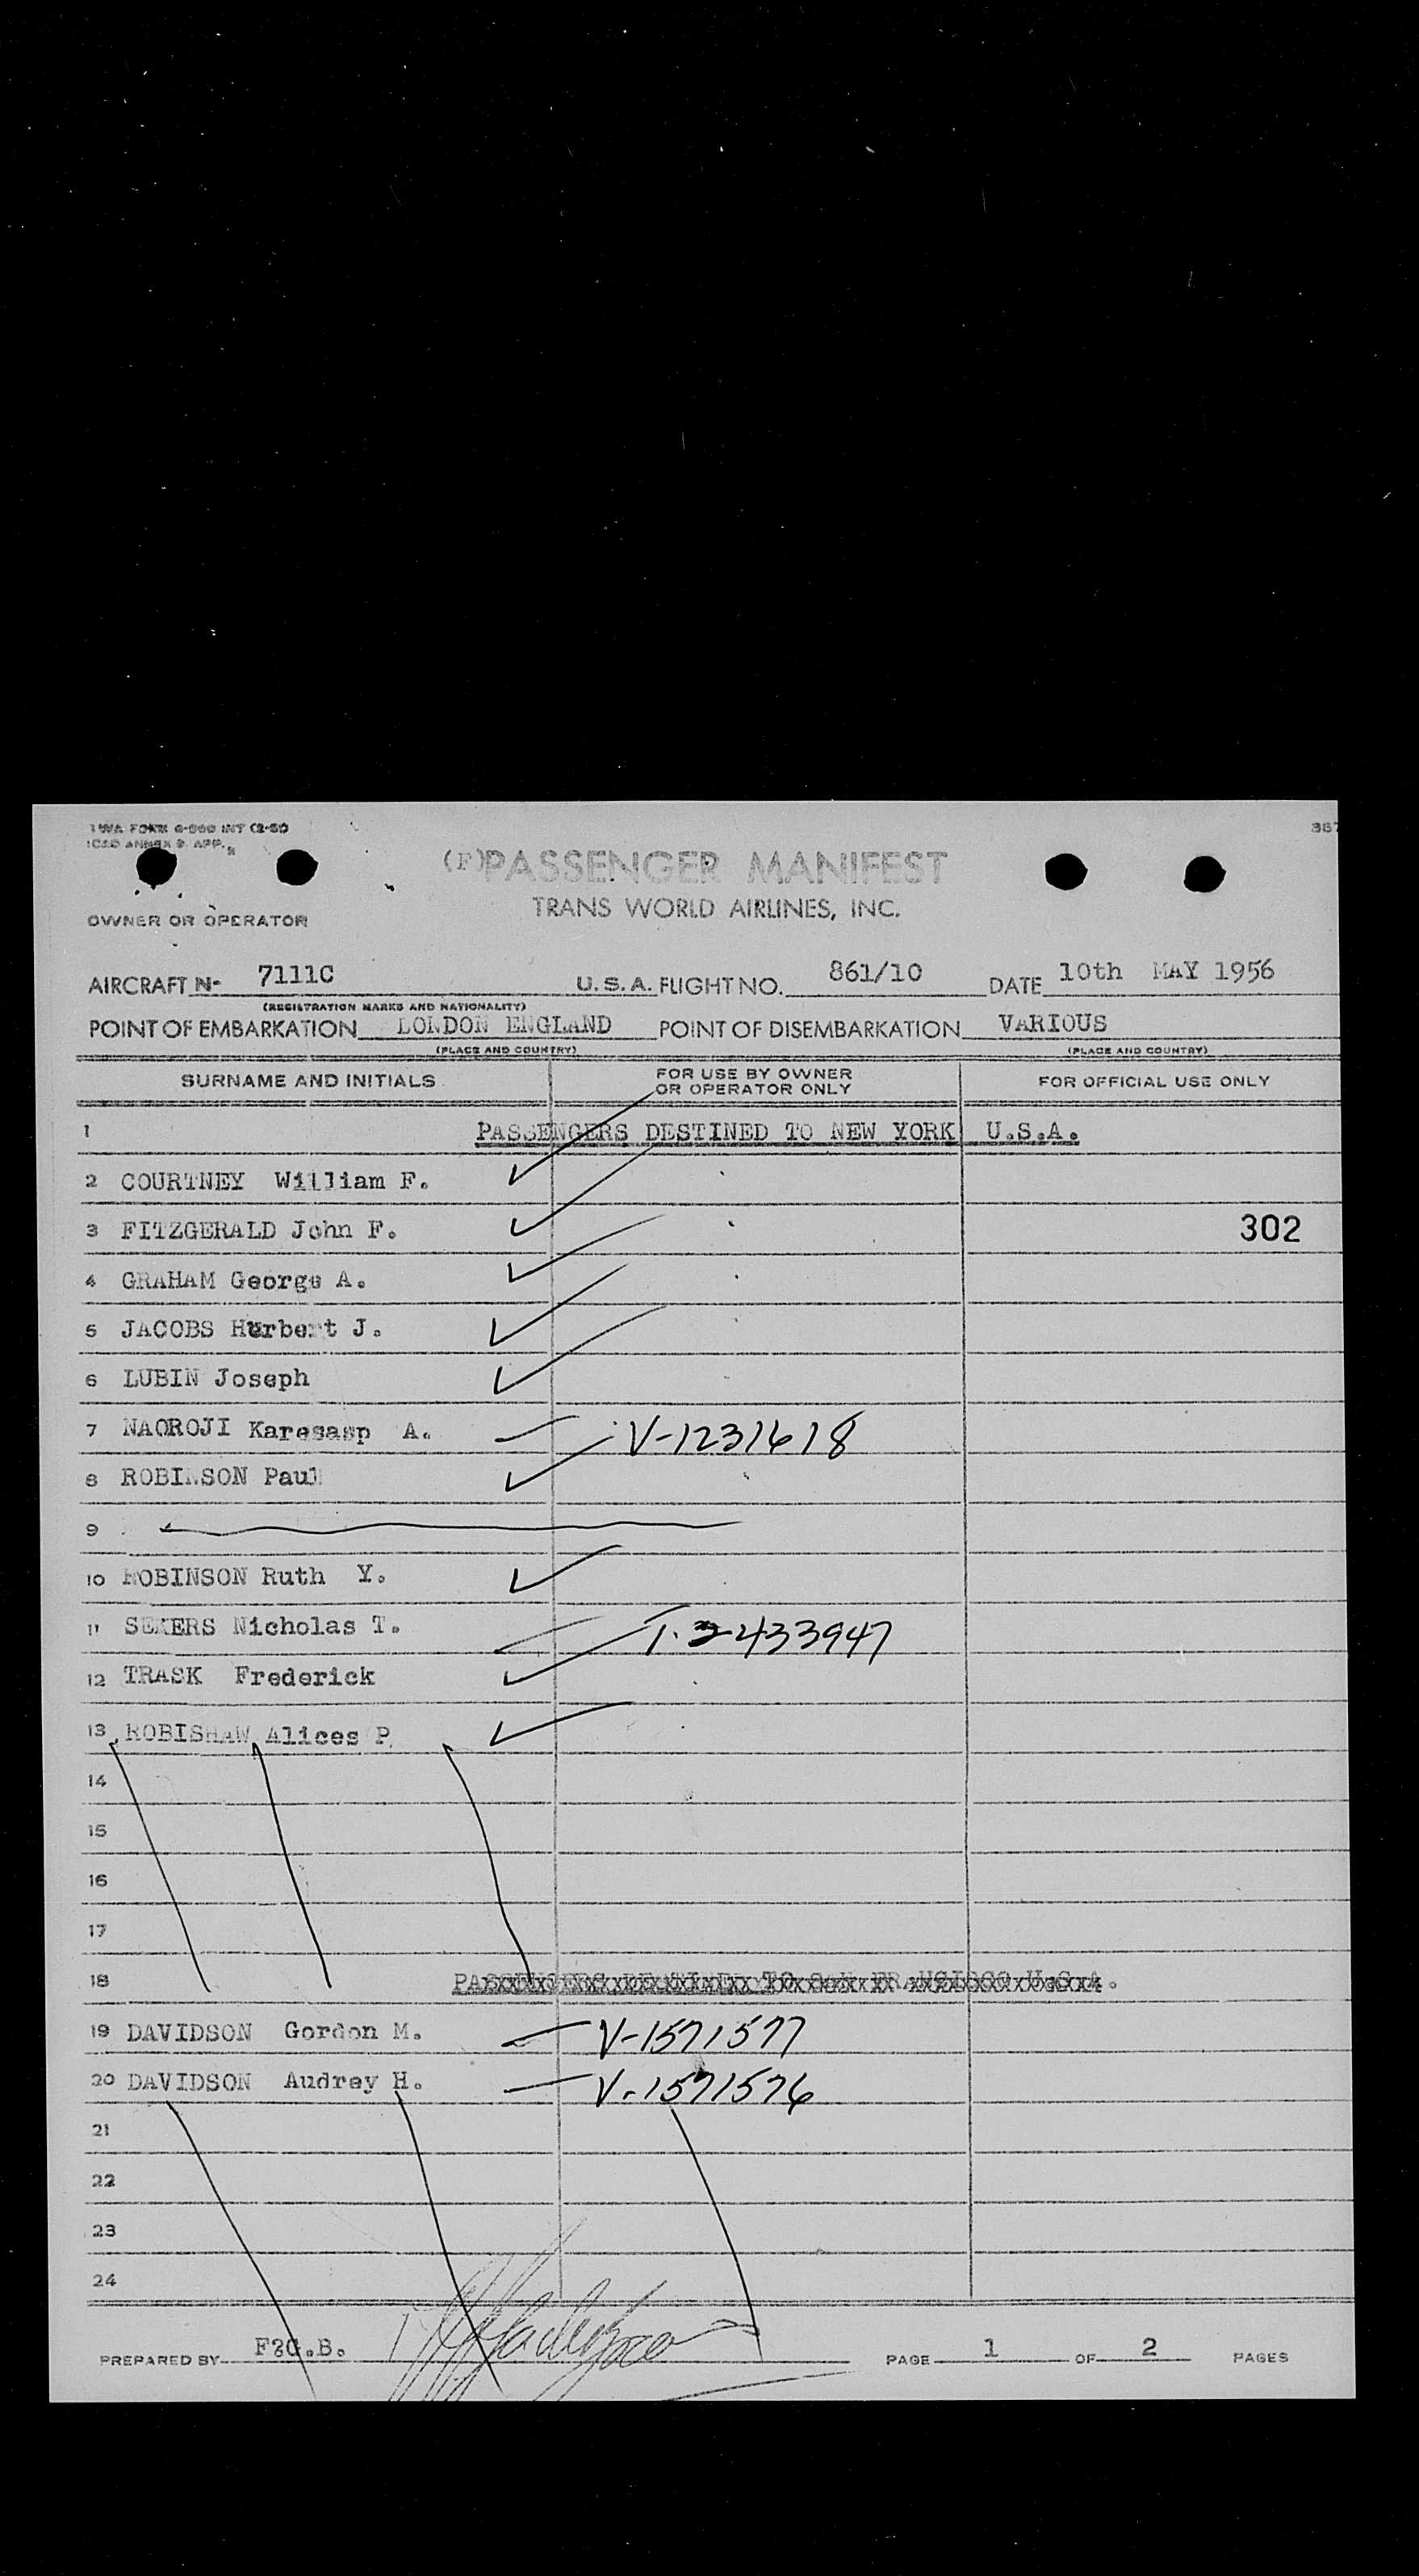 TWA FORM 6-960 INT (2-51)
ICAO ANNEX 9 APP.
(F)PASSENGER MANIFEST
TRANS WORLD AIRLINES, INC.
OWNER OR OPERATOR
AIRCRAFT N- 7111C U.S.A. FLIGHT NO. 861/10 DATE 10th MAY 1956
(REGISTRATION MARKS AND NATIONALITY)
POINT OF EMBARKATION LONDON ENGLAND POINT OF DISEMBARKATION VARIOUS
(PLACE AND COUNTRY) (PLACE AND COUNTRY)
SURNAME AND INITIALS FOR USE BY OWNER OR OPERATOR ONLY FOR OFFICIAL USE ONLY
1 PASSENGERS DESTINED TO NEW YORK U.S.A.
2 COURTNEY William F.
3 FITZGERALD John F. 302
4 GRAHAM George A.
5 JACOBS Herbert J.
6 LUBIN Joseph
7 NAOROJI Karesasp A. V-1231618
8 ROBINSON Paul
9
10 ROBINSON Ruth Y.
11 SEKERS Nicholas T. T-2433947
12 TRASK Frederick
13 ROBISHAW Alices P
14
15
16
17
18 PASSENGERS DESTINED TO SAN FRANCISCO U.S.A.
19 DAVIDSON Gordon M. V-1571577
20 DAVIDSON Audrey H. V-1571576
21
22
23
24
PREPARED BY F?G.B. PAGE 1 OF 2 PAGES